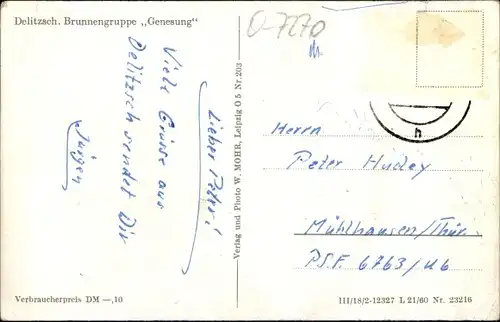 Delitzsch. Brunnengruppe „Genesung"
O-7270
Lieber Peter!
Viele Grüsse aus
Delitzsch sendet Dir
Jürgen
Verlag und Photo W. MOHR, Leipzig O 5 Nr. 203
h
Herrn
Peter
Mühlhausen/Thür.
P.S.F. 6763/K6
Verbraucherpreis DM —,10
III/18/2-12327 L 21/60 Nr. 23216